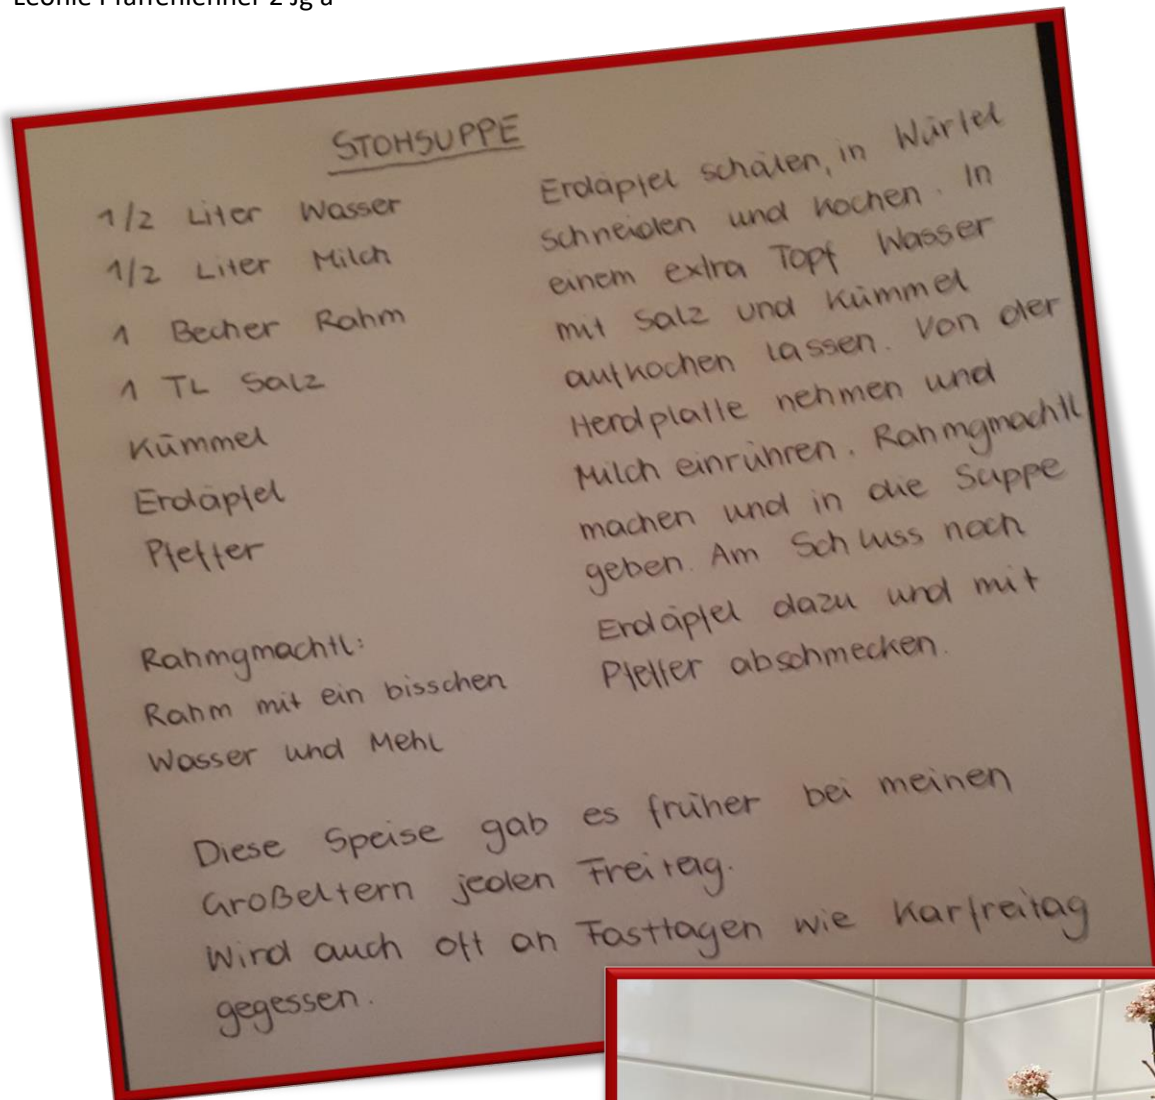 STOHSUPPE
1/2 Liter Wasser
1/2 Liter Milch
1 Becher Rahm
1 TL Salz
Kümmel
Erdäpfel
Pfeffer
Rahmgmachtl:
Rahm mit ein bisschen
Wasser und Mehl
Erdäpfel schälen, in Würfel
schneiden und kochen. In
einem extra Topf Wasser
mit Salz und Kümmel
aufkochen lassen. Von der
Herdplatte nehmen und
Milch einrühren. Rahmgmachtl
machen und in die Suppe
geben. Am Schluss noch
Erdäpfel dazu und mit
Pfeffer abschmecken.
Diese Speise gab es früher bei meinen
Großeltern jeden Freitag.
Wird auch oft an Fasttagen wie Karfreitag
gegessen.